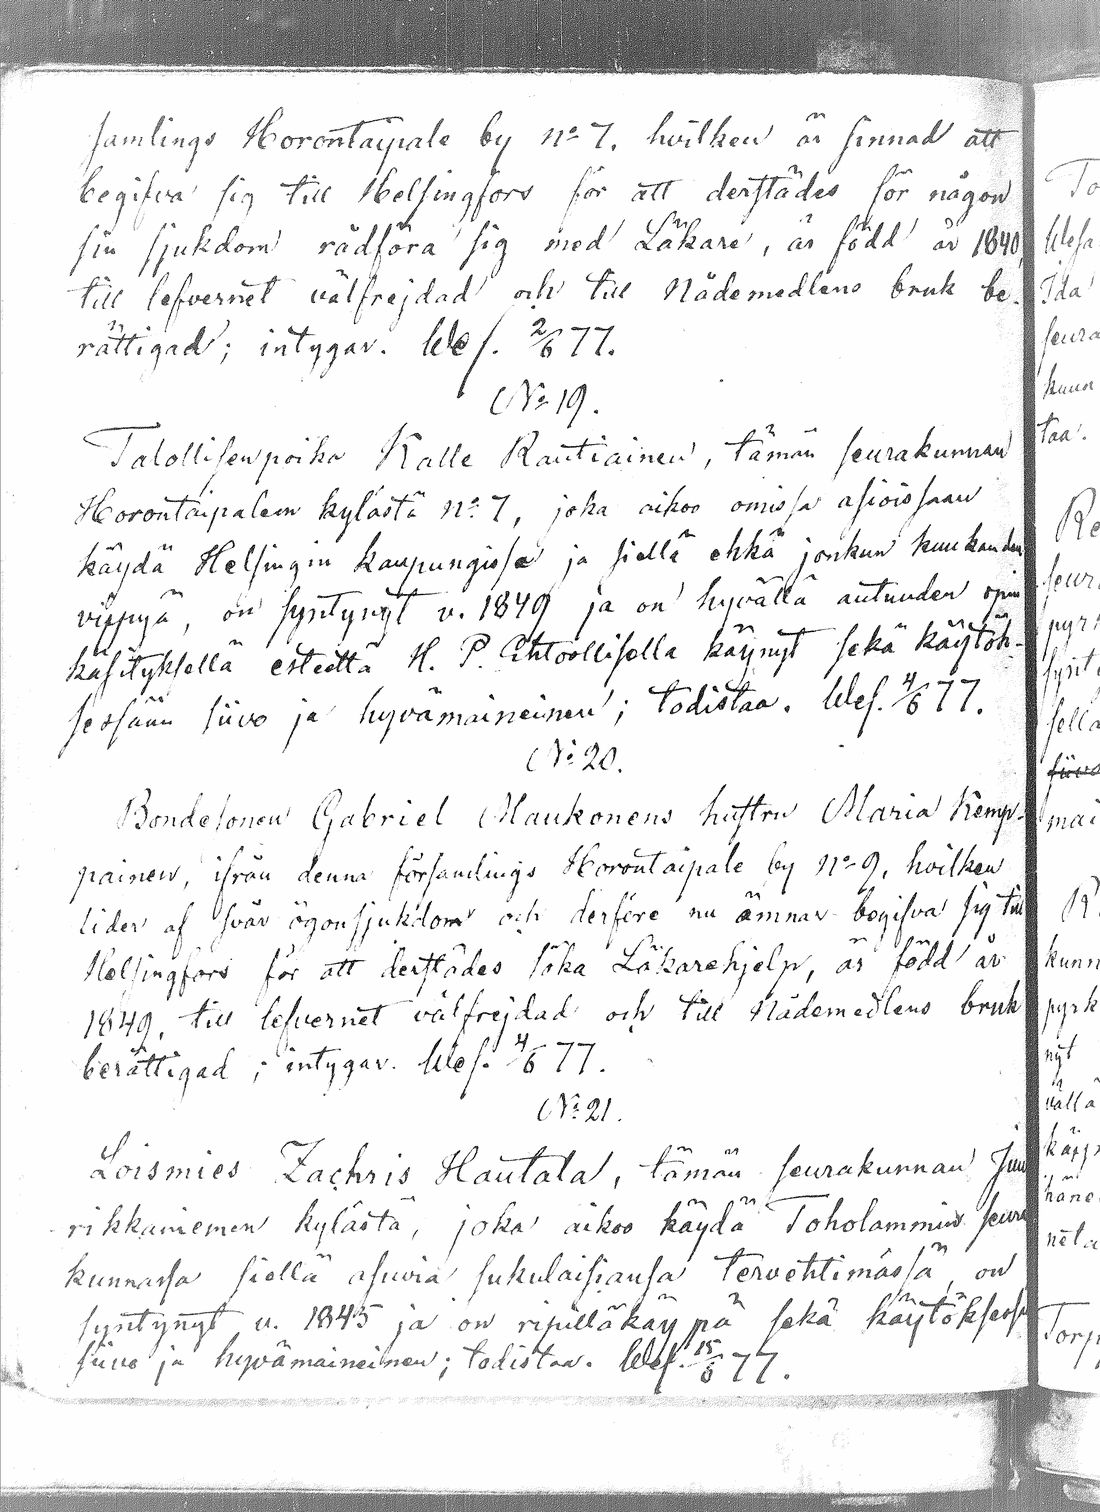 samlings Horontaipale by No 7, hvilken är sinnad att
begifva sig till Helsingfors för att derstädes för någon
sin sjukdom rådföra sig med Läkare, är född år 1840,
till lefvernet välfrejdad och till Nådemedlens bruk be-
rättigad; intygar. Wes. 2/6 77.
No 19.
Talollisenpoika Kalle Rautiainen, tämän seurakunnan
Horontaipaleen kylästä No 7, joka aikoo omissa asioissaan
käydä Helsingin kaupungissa ja siellä ehkä jonkun kuukauden
viipyä, on syntynyt v. 1849 ja on hyvällä autuuden opin
käsityksellä esteettä H. P. Ehtoollisella käynyt sekä käytök-
sessään siivo ja hyvämaineinen; todistaa. Wes. 4/6 77.
No 20.
Bondesonen Gabriel Maukonens hustru Maria Kemp-
painen, ifrån denna församlings Horontaipale by No 9, hvilken
lider af svår ögonsjukdom och derföre nu ämnar begifva sig till
Helsingfors för att derstädes söka Läkarehjelp, är född år
1849, till lefvernet välfrejdad och till Nådemedlens bruk
berättigad; intygar. Wes. 4/6 77.
No 21.
Loismies Zachris Hautala, tämän seurakunnan Juu
rikkaniemen kylästä, joka aikoo käydä Toholammin seura
kunnassa siellä asuvia sukulaisiansa tervehtimässä, on
syntynyt v. 1845 ja on ripilläkäypä sekä käytöksess
siivo ja hyvämaineinen; todistaa. Wes. 15/6 77.
To
Wesa
Ida
seura
kuun
taa.
Re
seur
pyr
synt
sella
siivo
mai
R.
kunn
pyrk
nyt
vällä
käyp
häne
neta
Torp